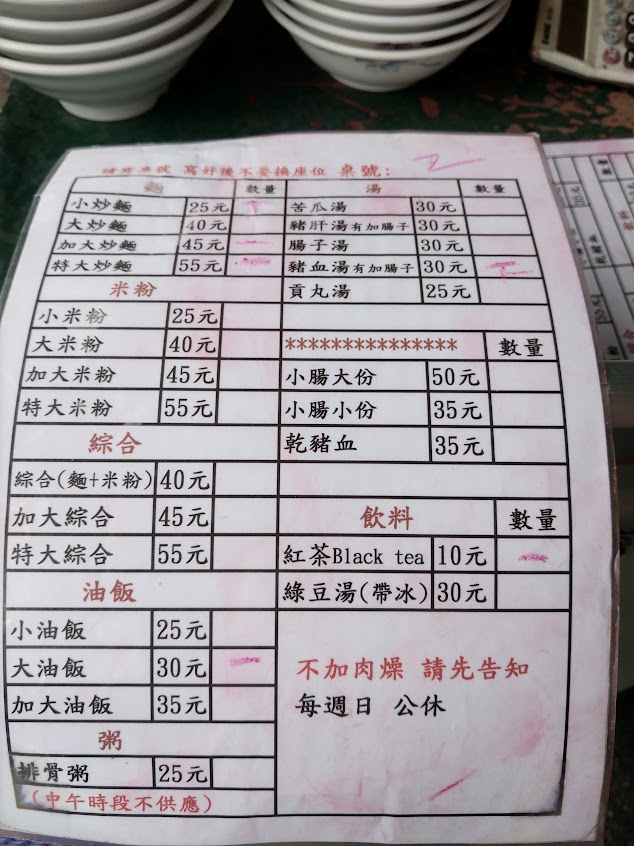 寫好後不要換座位 桌號:
麵 數量 湯 數量
小炒麵 25元 苦瓜湯 30元
大炒麵 40元 豬肝湯有加腸子 30元
加大炒麵 45元 腸子湯 30元
特大炒麵 55元 豬血湯有加腸子 30元
米粉 貢丸湯 25元
小米粉 25元
大米粉 40元 *************** 數量
加大米粉 45元 小腸大份 50元
特大米粉 55元 小腸小份 35元
綜合 乾豬血 35元
綜合(麵+米粉) 40元
加大綜合 45元 飲料 數量
特大綜合 55元 紅茶Black tea 10元
油飯 綠豆湯(帶冰) 30元
小油飯 25元
大油飯 30元 不加肉燥 請先告知
加大油飯 35元 每週日 公休
粥
排骨粥 25元
(中午時段不供應)